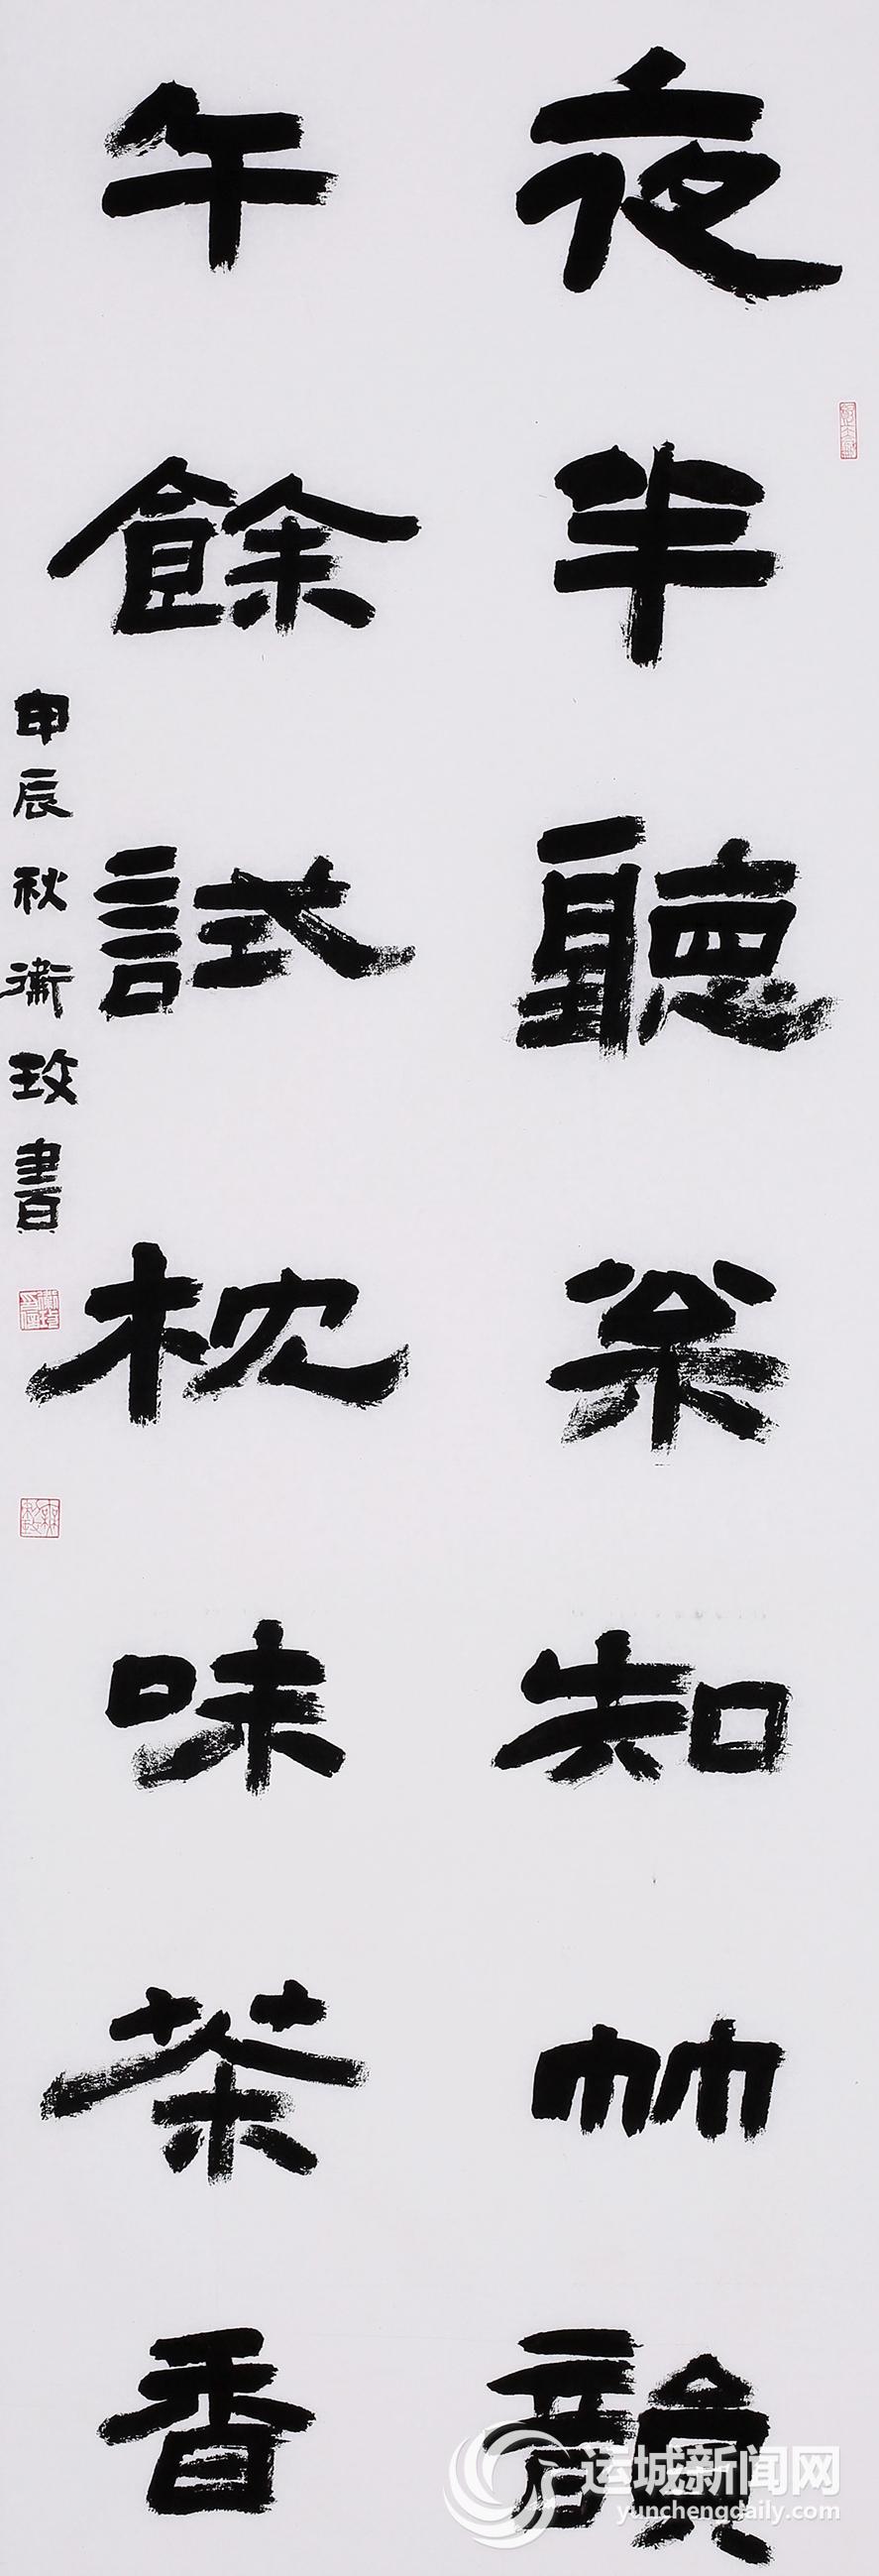 夜半聽枀知竹韻
午餘試枕味茶香
甲辰秋衛玫書
运城新闻网
yunchengdaily.com